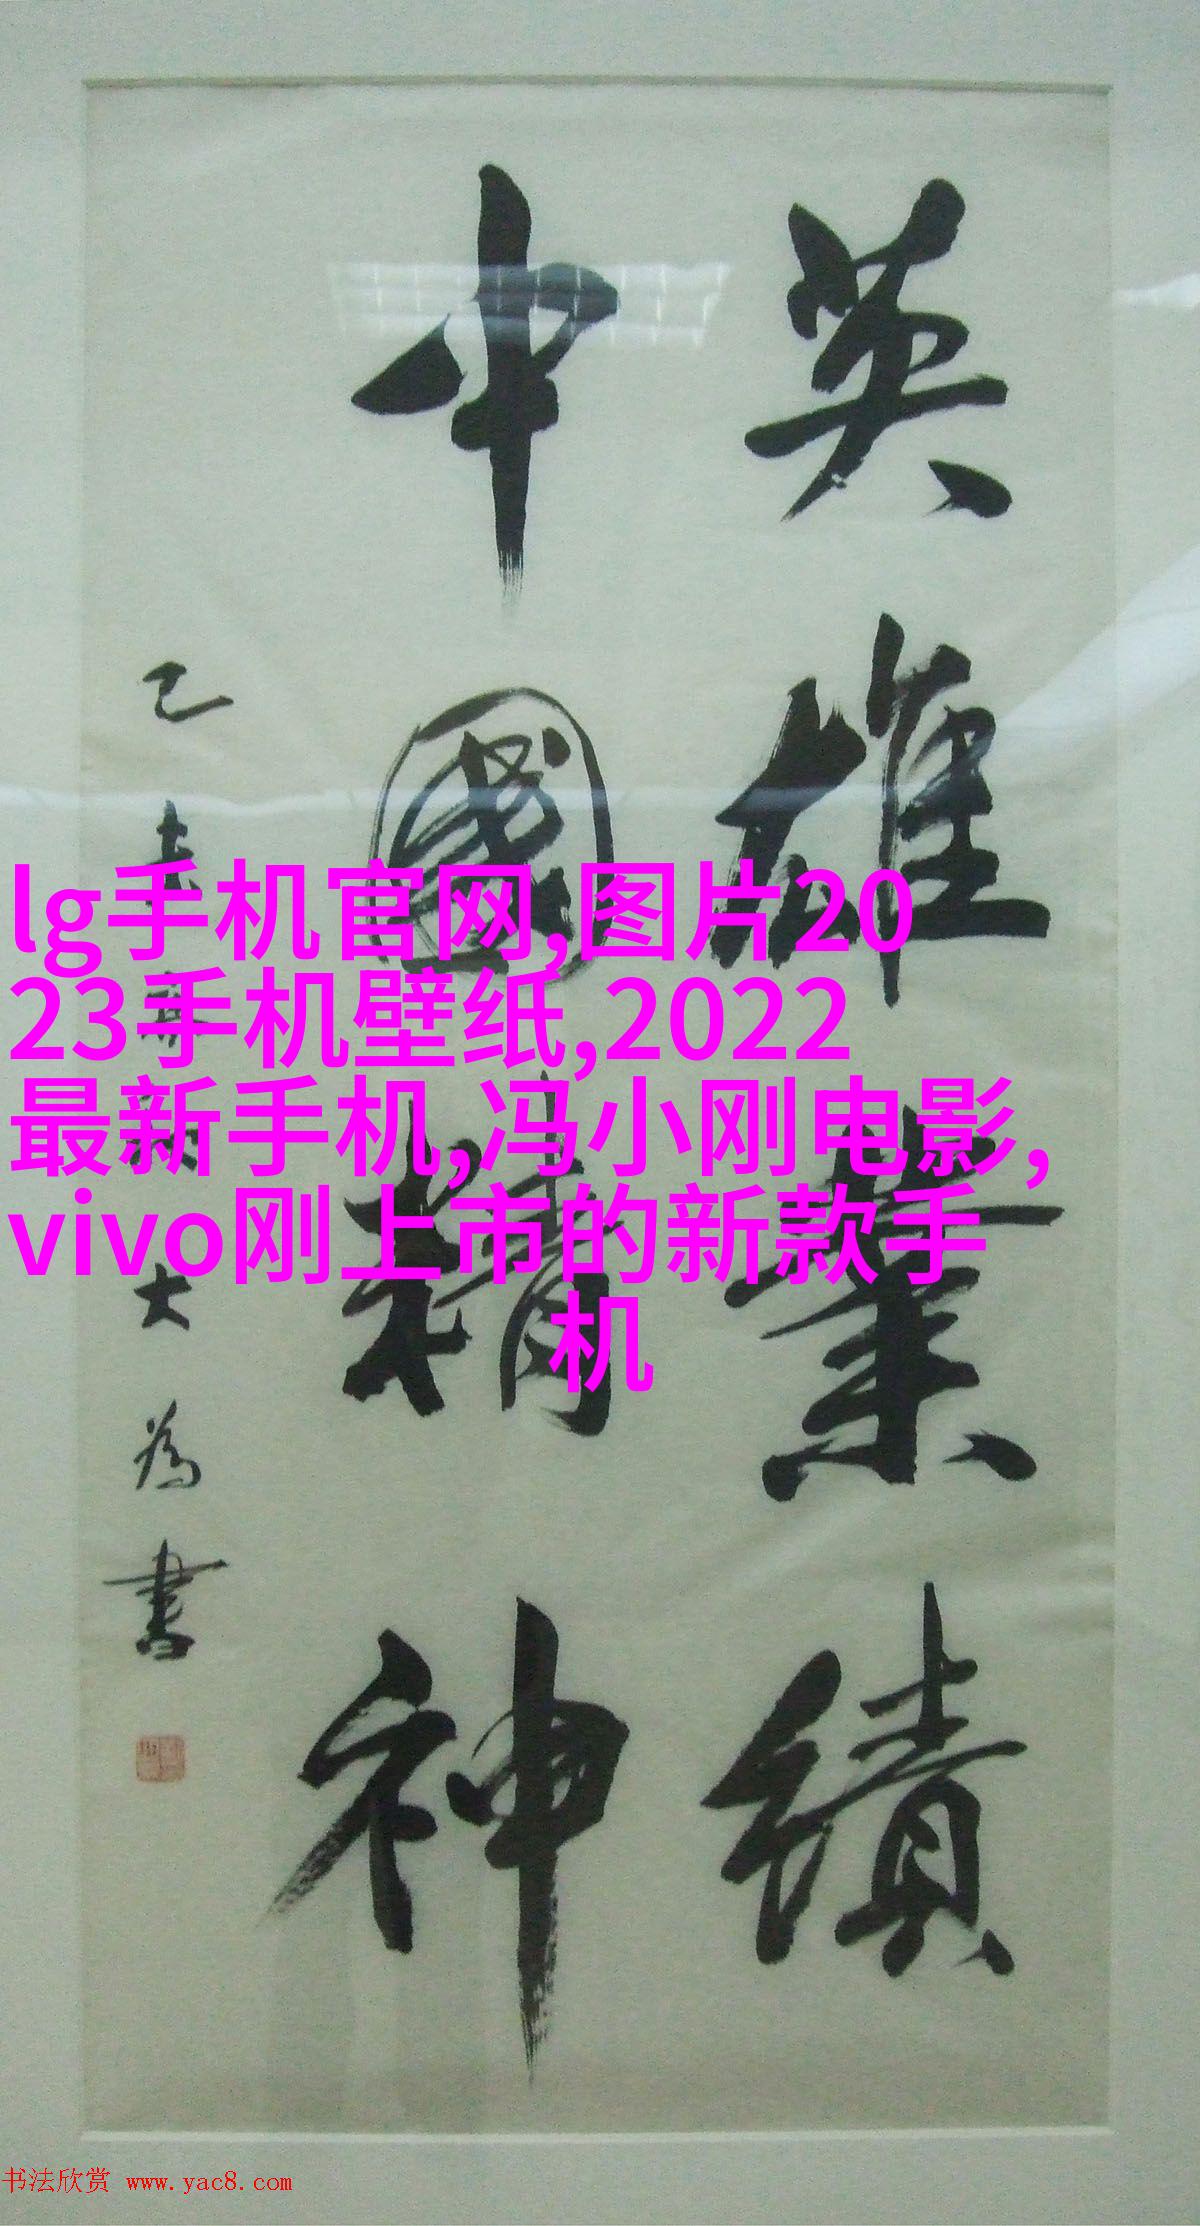 英雄業績
中國精神
大為書
lg手机官网,图片20
23手机壁纸,2022
最新手机,冯小刚电影,
vivo刚上市的新款手
机
书法欣赏 www.yac8.com